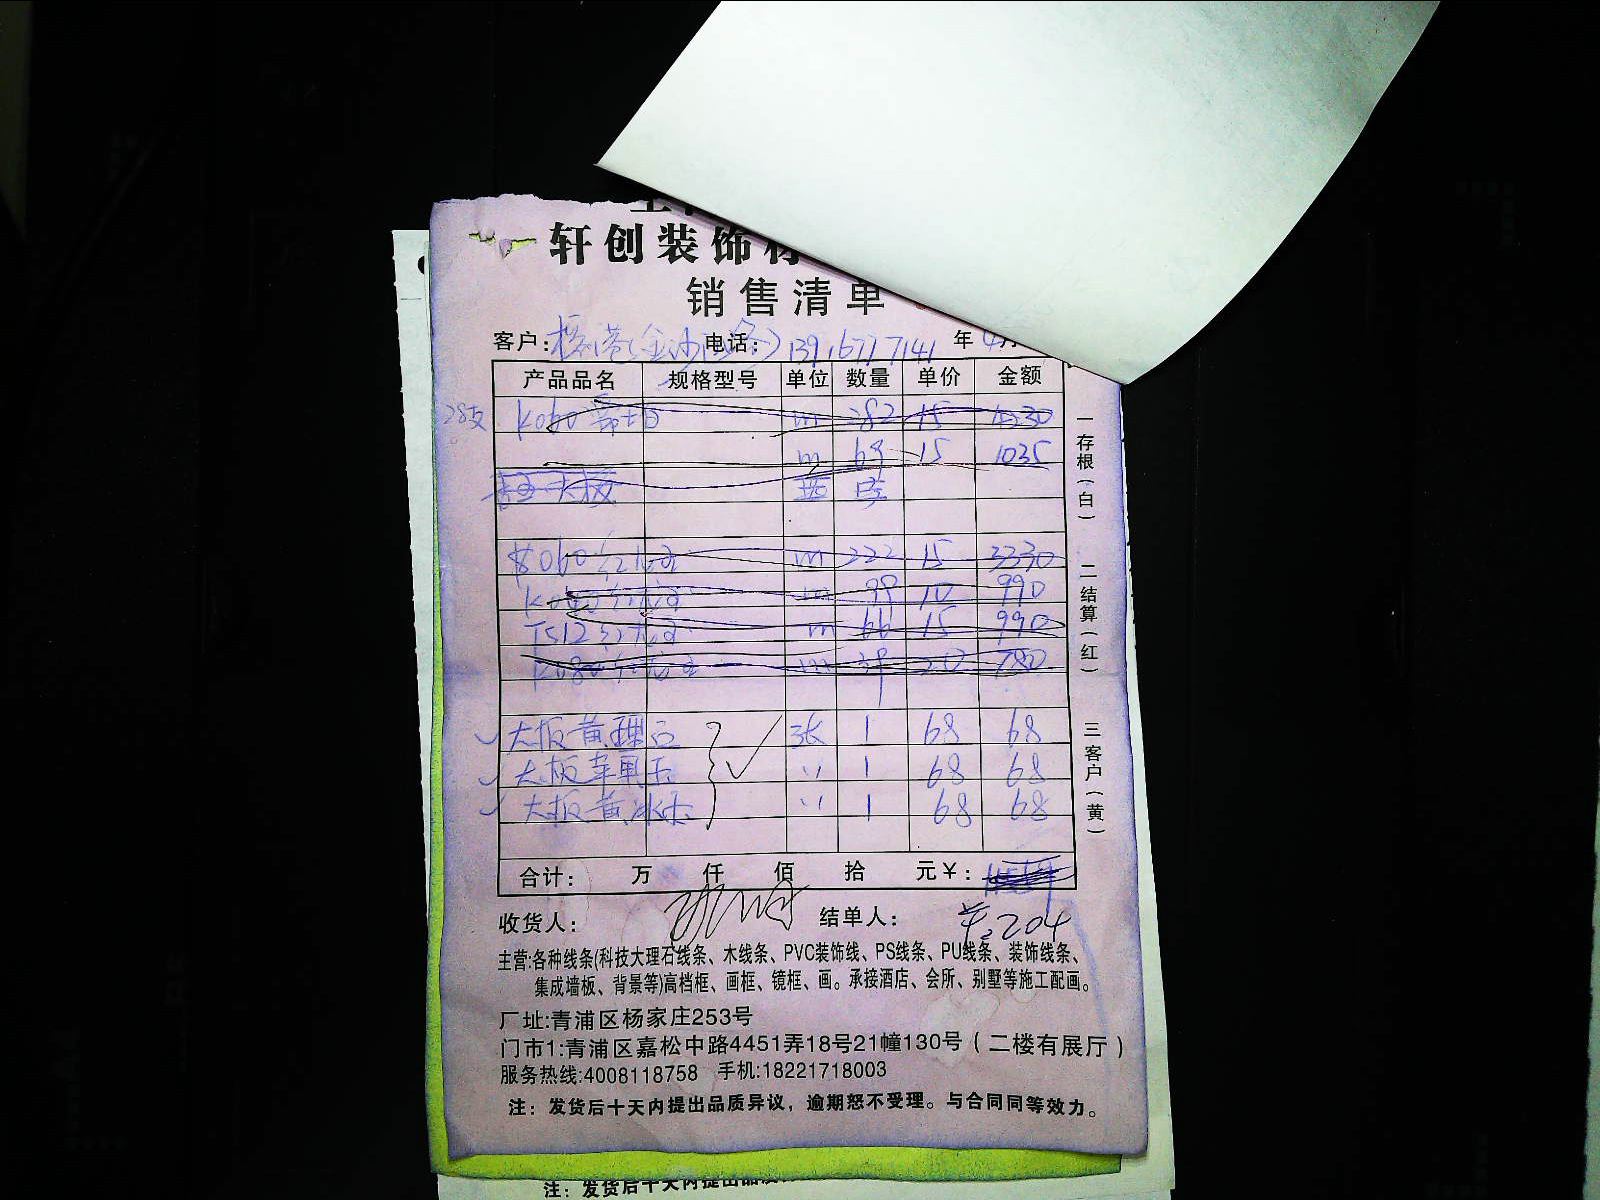 轩创装饰材
销售清单
客户: 电话: 13916717141 年 月
产品品名 规格型号 单位 数量 单价 金额
28支 K060 m 282 15 4230
m 69 15 1035
大板
K060 m 222 15 3330
m 99 10 990
TS12 m 66 15 990
K080 m 39 20 780
大板黄理石 张 1 68 68
大板苹果玉 〃 1 68 68
大板黄冰玉 〃 1 68 68
合计: 万 仟 佰 拾 元¥:
收货人: 结单人: ¥:204
主营:各种线条(科技大理石线条、木线条、PVC装饰线、PS线条、PU线条、装饰线条、
集成墙板、背景等)高档框、画框、镜框、画。承接酒店、会所、别墅等施工配画。
厂址:青浦区杨家庄253号
门市1:青浦区嘉松中路4451弄18号21幢130号(二楼有展厅)
服务热线:4008118758 手机:18221718003
注:发货后十天内提出品质异议,逾期恕不受理。与合同同等效力。
一存根(白) 二结算(红) 三客户(黄)
注:发货后十天内提出品